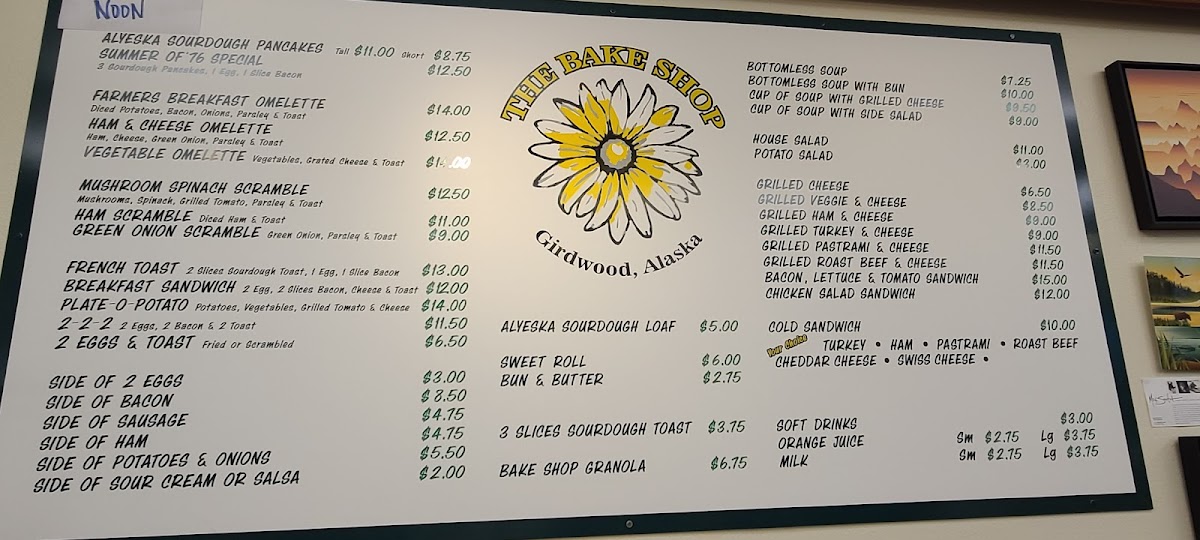 NOON
ALYESKA SOURDOUGH PANCAKES Tall $11.00 Short $8.75
SUMMER OF '76 SPECIAL $12.50
3 Sourdough Pancakes, 1 Egg, 1 Slice Bacon
FARMERS BREAKFAST OMELETTE $14.00
Diced Potatoes, Bacon, Onions, Parsley & Toast
HAM & CHEESE OMELETTE $12.50
Ham, Cheese, Green Onion, Parsley & Toast
VEGETABLE OMELETTE Vegetables, Grated Cheese & Toast
MUSHROOM SPINACH SCRAMBLE $12.50
Mushrooms, Spinach, Grilled Tomato, Parsley & Toast
HAM SCRAMBLE Diced Ham & Toast $11.00
GREEN ONION SCRAMBLE Green Onion, Parsley & Toast $9.00
FRENCH TOAST 2 Slices Sourdough Toast, 1 Egg, 1 Slice Bacon $13.00
BREAKFAST SANDWICH 2 Egg, 2 Slices Bacon, Cheese & Toast $12.00
PLATE-O-POTATO Potatoes, Vegetables, Grilled Tomato & Cheese $14.00
2-2-2 2 Eggs, 2 Bacon & 2 Toast $11.50
2 EGGS & TOAST Fried or Scrambled $6.50
SIDE OF 2 EGGS $3.00
SIDE OF BACON $3.50
SIDE OF SAUSAGE $4.75
SIDE OF HAM $4.75
SIDE OF POTATOES & ONIONS $5.50
SIDE OF SOUR CREAM OR SALSA $2.00
THE BAKE SHOP
Girdwood, Alaska
ALYESKA SOURDOUGH LOAF $5.00
SWEET ROLL $6.00
BUN & BUTTER $2.75
3 SLICES SOURDOUGH TOAST $3.75
BAKE SHOP GRANOLA $6.75
BOTTOMLESS SOUP $7.25
BOTTOMLESS SOUP WITH BUN $10.00
CUP OF SOUP WITH GRILLED CHEESE $9.50
CUP OF SOUP WITH SIDE SALAD $9.00
HOUSE SALAD $11.00
POTATO SALAD $3.00
GRILLED CHEESE $6.50
GRILLED VEGGIE & CHEESE $8.50
GRILLED HAM & CHEESE $9.00
GRILLED TURKEY & CHEESE $9.00
GRILLED PASTRAMI & CHEESE $11.50
GRILLED ROAST BEEF & CHEESE $11.50
BACON, LETTUCE & TOMATO SANDWICH $15.00
CHICKEN SALAD SANDWICH $12.00
COLD SANDWICH $10.00
Your Choice TURKEY • HAM • PASTRAMI • ROAST BEEF
CHEDDAR CHEESE • SWISS CHEESE •
SOFT DRINKS $3.00
ORANGE JUICE Sm $2.75 Lg $3.75
MILK Sm $2.75 Lg $3.75